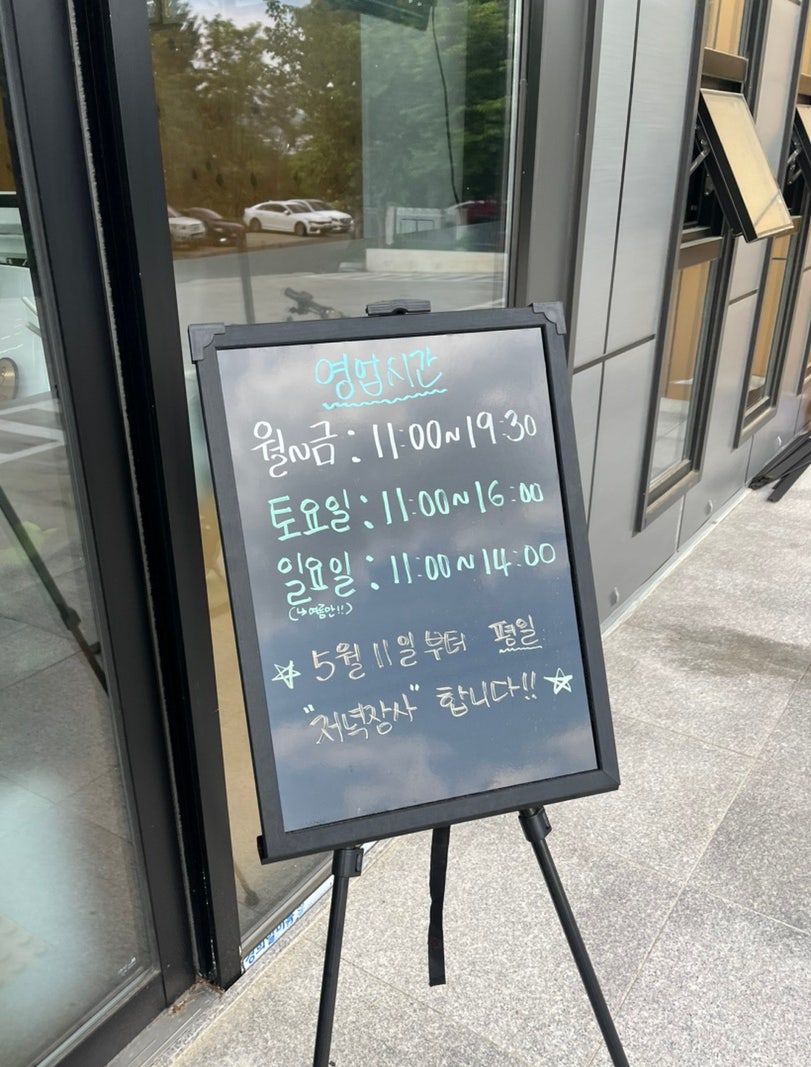 영업시간
월~금 : 11:00~19:30
토요일 : 11:00~16:00
일요일 : 11:00~14:00
(↳여름만!!)
☆ 5월 11일부터 평일
"저녁장사" 합니다!! ☆